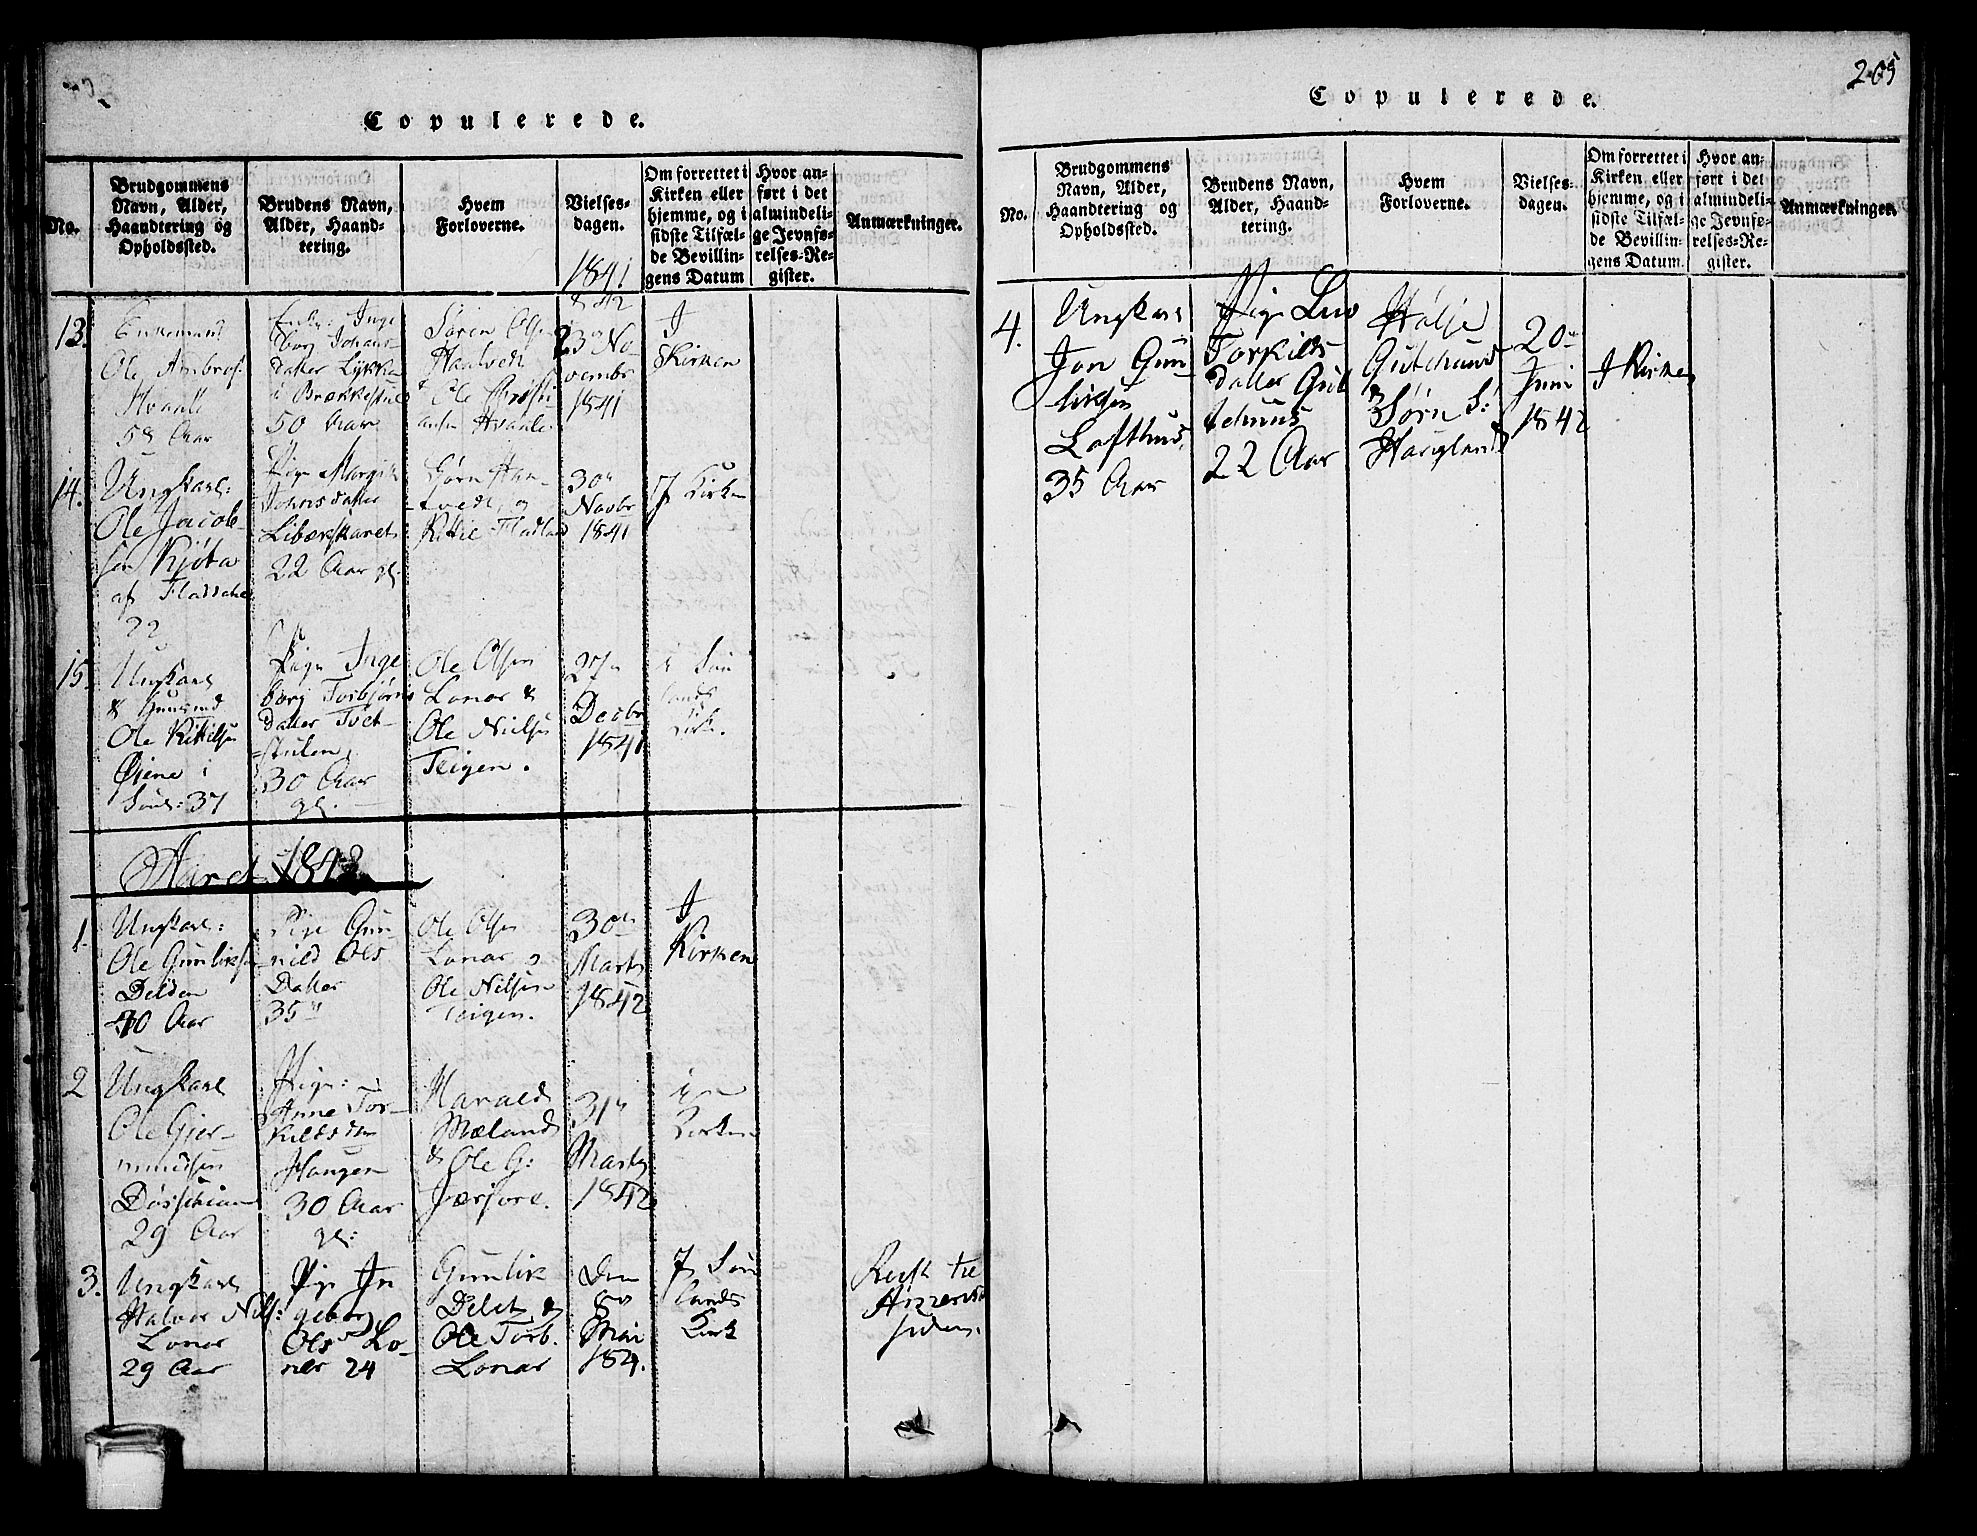 Copulerede.
No.
Brudgommens
Navn, Alder,
Haandtering og
Opholdssted.
Brudens Navn,
Alder, Haand-
tering.
Hvem
Forloverne.
Vielses-
dagen.
1841
1842
Om forrettet i
Kirken eller
hjemme, og i
sidste Tilfæl-
de Bevillin-
gens Datum
Hvor an-
ført i det
almindeli-
ge Jevnfø-
relses-Re-
gister.
Anmærkninger.
13.
Enkemand
Ole Ambros:
Hvaale
58 Aar
Enke: Inge
borg Johans
Datter Lykke
i Brækkestuen
50 Aar
Søren Olsen
Haatvedt
Ole Christi-
ansen Hvaale
3 No
vembr
1841
I
Kirken
14.
Ungkarl:
Ole Jacob-
sen Kjøta
af
22
Pige Margit
Johnsdatter
Liberskaret
22 Aar gl.
Haa-
tvedt, og
Kittil Fladland
30
Novbr
1841
I Kirken
15.
Ungkarl
& Huusmd
Ole Kittilsen
Øiene i
Saul: 37
Pige Inge
borg Torbjørns
Datter Tvet-
stulen,
30 Aar
gl.
Ole Olsen
Lonar &
Ole Nielsen
Teigen.
27
Decbr
1841
i Sau
lands
Kirk.
Aaret 1842
1.
Ungkarl:
Ole Gunliksen
Delden
40 Aar
Pige Gun-
nild Ols
Datter
35
Ole Olsen
Lonar og
Ole Nilsen
Teigen.
30
Marts
1842
I
Kirken
2
Ungkarl
Ole Gjer-
mundsen
29 Aar
Pige:
Anne Tor-
kildsdtr
Haugen
30 Aar
gl:
Harald
Mæland
& Ole G:
31
Marts
1842
i
Kirken
3.
Ungkarl
Halvor Nils:
Lonar
29 Aar
Pige In
geborg
Ols Lo-
ner 24
Gunlik
Delet &
Ole Torb.
Lonar
Den
8
Mai
184.
I Sau
lands
Kirk
Reist til
205
Copulerede.
No.
Brudgommens
Navn, Alder,
Haandtering og
Opholdssted.
Brudens Navn,
Alder, Haand-
tering.
Hvem
Forloverne.
Vielses-
dagen.
Om forrettet i
Kirken eller
hjemme, og i
sidste Tilfæl-
de Bevillin-
gens Datum.
Hvor an-
ført i det
almindeli-
ge Jevnfø-
relses-Re-
gister.
Anmærkninger.
4.
Ungkarl
Jon Gun-
liksen
Lofthus,
35 Aar
Pige Liv
Torkilds
datter Gut
tehuus
22 Aar
Hølje
Gutehuus
& Sørn S:
Haugland
20
Juni
1842
I Kirken